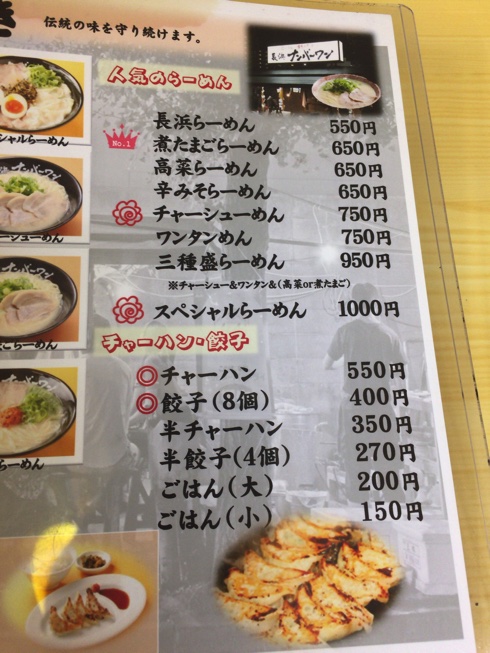 伝統の味を守り続けます。
長浜 ナンバーワン
人気のらーめん
長浜らーめん 550円
No.1 煮たまごらーめん 650円
高菜らーめん 650円
辛みそらーめん 650円
チャーシューめん 750円
ワンタンめん 750円
三種盛らーめん 950円
※チャーシュー&ワンタン&(高菜or煮たまご)
スペシャルらーめん 1000円
チャーハン・餃子
◎チャーハン 550円
◎餃子(8個) 400円
半チャーハン 350円
半餃子(4個) 270円
ごはん(大) 200円
ごはん(小) 150円
シャルらーめん
ーシューめん
ごらーめん
らーめん